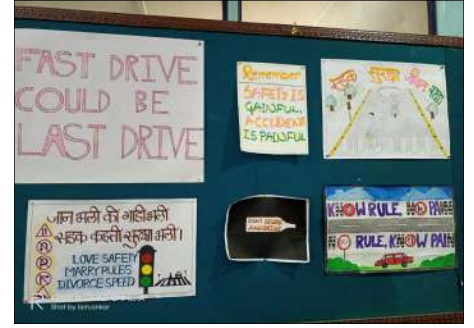 FAST DRIVE
COULD BE
LAST DRIVE
Remember
SAFETY IS
GAINFUL,
ACCIDENT
IS PAINFUL
सड़क सुरक्षा जीवन रक्षा
जान भली की गाडी भली
सड़क कहती सुरक्षा भली।
LOVE SAFETY
MARRY RULES
DIVORCE SPEED
DON'T DRINK
AND DRIVE
KNOW RULE, NO PAIN
NO RULE, KNOW PAIN
Shot by